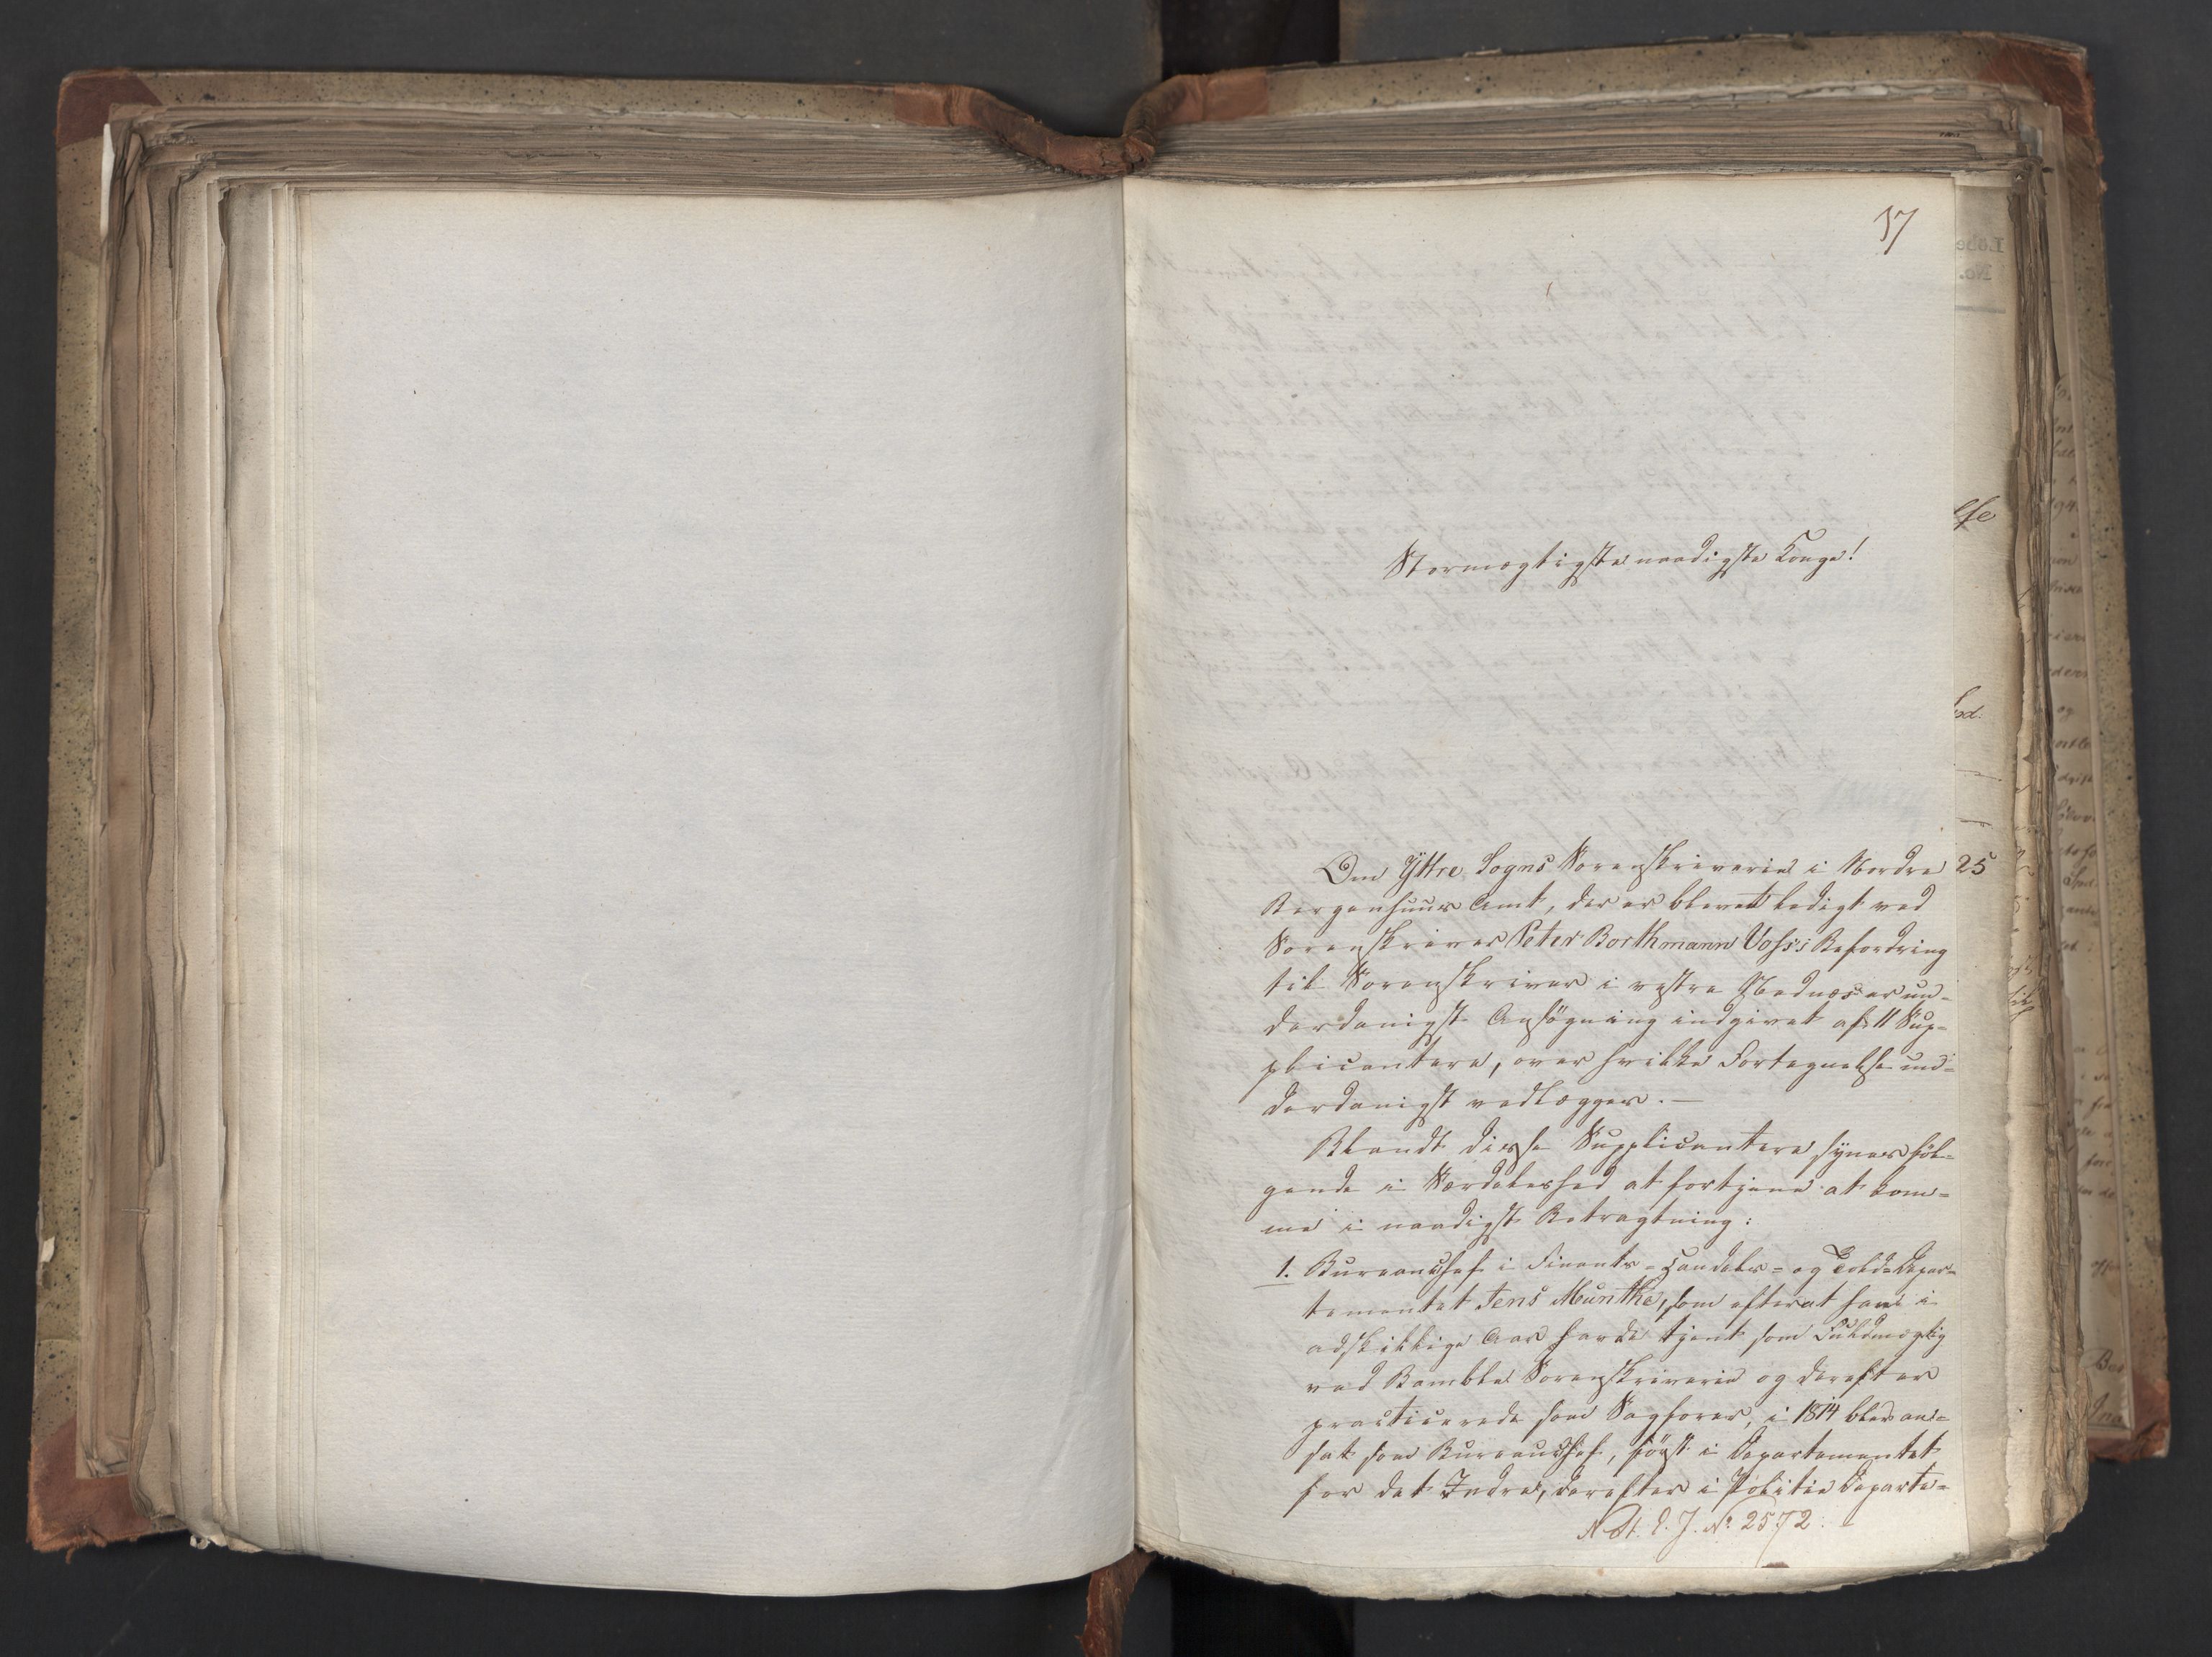 37
Stormægtigste naadigste Konge!
Om Yttre Sogns Sorenskriverie i Nordre 25
Bergenhuus Amt, der er blevet ledigt ved
Sorenskriver Peter Borthmann Voss's Befordring
til Sorenskriver i vestre Nednæs er un-
derdanigst Ansøgning indgivet af 11 Sup-
plicantere, over hvilke Fortegnelse un-
derdanigst vedlægges. —
Blandt disse Supplicantere synes føl-
gende i Særdeleshed at fortjene at kom-
me i naadigst Betragtning:
1. Bureauchef i Finants- Handels- og Told-Depar-
tementet Jens Munthe, som efterat have i
adskillige Aar havde tjent som Fuldmægtig
ved Bamble Sorenskriverie og derefter
practicerede som Sagfører, i 1814 blev an-
sat som Bureauchef, først i Departementet
for det Indre, derefter i Politie Departe-
No 2572.